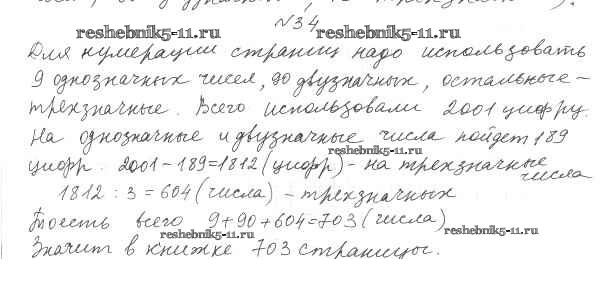 №34
reshebnik5-11.ru reshebnik5-11.ru
Для нумерации страниц надо использовать
9 однозначных чисел, 90 двузначных, остальные –
трехзначные. Всего использовали 2001 цифру.
На однозначные и двузначные числа пойдет 189
reshebnik5-11.ru
цифр. 2001 – 189 = 1812 (цифр) – на трехзначные
числа
1812 : 3 = 604 (числа) – трехзначных
Тоесть всего 9+90+604=703 (числа)
reshebnik5-11.ru reshebnik5-11.ru
Значит в книжке 703 страницы.